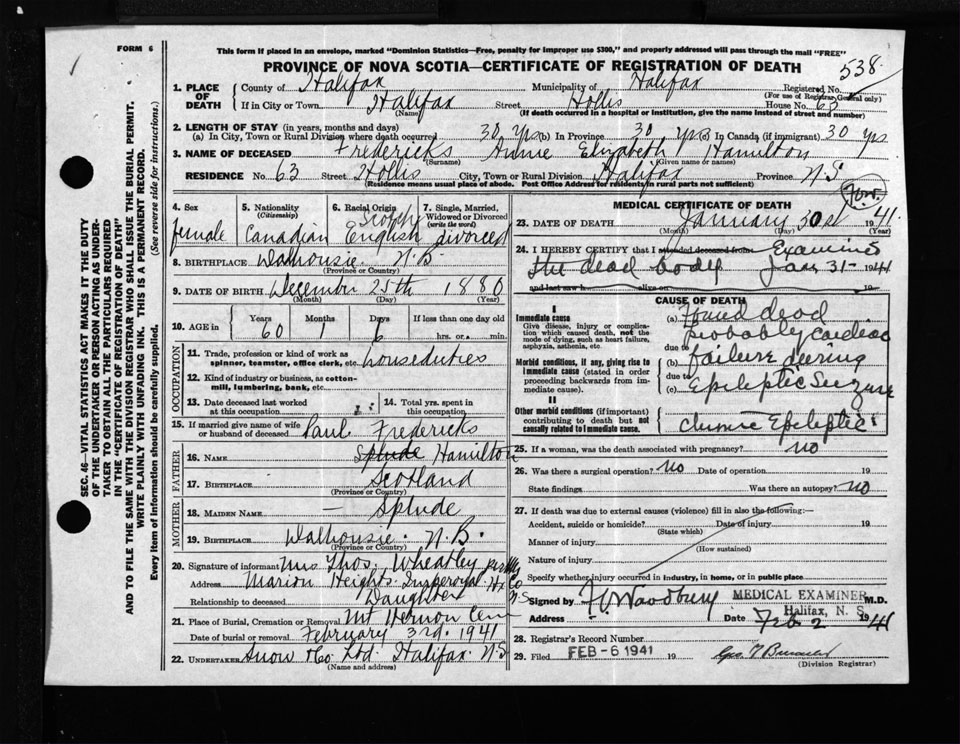 FORM 6
This form if placed in an envelope, marked "Dominion Statistics—Free, penalty for improper use $300," and properly addressed will pass through the mail "FREE"
PROVINCE OF NOVA SCOTIA—CERTIFICATE OF REGISTRATION OF DEATH
538
1. PLACE OF DEATH
County of Halifax Municipality of Halifax Registered No.
(For use of Registrar General only)
If in City or Town Halifax Street Hollis House No. 63
(Name) (If death occurred in a hospital or institution, give the name instead of street and number)
2. LENGTH OF STAY (in years, months and days)
(a) In City, Town or Rural Division where death occurred 30 yrs (b) In Province 30 yrs (c) In Canada (if immigrant) 30 yrs
3. NAME OF DECEASED Fredericks Annie Elizabeth Hamilton
(Surname) (Given name or names)
RESIDENCE No. 63 Street Hollis City, Town or Rural Division Halifax Province N.S.
(Residence means usual place of abode. Post Office Address for residents in rural parts not sufficient)
4. Sex female
5. Nationality (Citizenship) Canadian
6. Racial Origin Scotch English
7. Single, Married, Widowed or Divorced (write the word) divorced
8. BIRTHPLACE Dalhousie N.B.
(Province or Country)
9. DATE OF BIRTH December 25th 1880
(Month) (Day) (Year)
10. AGE in Years 60 Months 1 Days 6 If less than one day old hrs. or min.
OCCUPATION
11. Trade, profession or kind of work as spinner, teamster, office clerk, etc. housduties
12. Kind of industry or business, as cotton-mill, lumbering, bank, etc.
13. Date deceased last worked at this occupation
14. Total yrs. spent in this occupation
15. If married give name of wife or husband of deceased Paul Fredericks
FATHER
16. Name Splude Hamilton
17. Birthplace Scotland
(Province or Country)
MOTHER
18. Maiden Name — Splude
19. Birthplace Dalhousie N.B.
(Province or Country)
20. Signature of informant Mrs Thos. Wheatley
Address Marion Heights Imperoyal Hx Co N.S
Relationship to deceased Daughter
21. Place of Burial, Cremation or Removal Mt Hermon Cem
Date of burial or removal February 3rd. 1941
22. Undertaker Snow & Co Ltd. Halifax N.S
(Name and address)
MEDICAL CERTIFICATE OF DEATH
23. DATE OF DEATH January 30st 1941
(Month) (Day) (Year)
24. I HEREBY CERTIFY that I attended deceased from Examined
the dead body Jan 31- 1941
and last saw h alive on 19
CAUSE OF DEATH
I
Immediate cause
Give disease, injury or complication which caused death, not the mode of dying, such as heart failure, asphyxia, asthenia, etc.
Morbid conditions, if any, giving rise to Immediate cause (stated in order proceeding backwards from immediate cause).
II
Other morbid conditions (if important) contributing to death but not causally related to Immediate cause.
(a) Found dead
probably Cardiac
due to
(b) failure during
due to
(c) Epileptic Seizure
chronic Epileptic
25. If a woman, was the death associated with pregnancy? no
26. Was there a surgical operation? no Date of operation 19
State findings Was there an autopsy? no
27. If death was due to external causes (violence) fill in also the following:—
Accident, suicide or homicide? Date of injury 19
(State which)
Manner of injury
(How sustained)
Nature of injury
Specify whether injury occurred in industry, in home, or in public place
Signed by H. Woodbury MEDICAL EXAMINER M.D.
Halifax, N. S.
Address Date Feb 2 1941
28. Registrar's Record Number
29. Filed FEB -6 1941 19
(Division Registrar)
SEC. 46—VITAL STATISTICS ACT MAKES IT THE DUTY
OF THE UNDERTAKER OR PERSON ACTING AS UNDER-
TAKER TO OBTAIN ALL THE PARTICULARS REQUIRED
IN THE "CERTIFICATE OF REGISTRATION OF DEATH"
AND TO FILE THE SAME WITH THE DIVISION REGISTRAR WHO SHALL ISSUE THE BURIAL PERMIT.
WRITE PLAINLY WITH UNFADING INK. THIS IS A PERMANENT RECORD.
Every item of information should be carefully supplied. (See reverse side for instructions.)